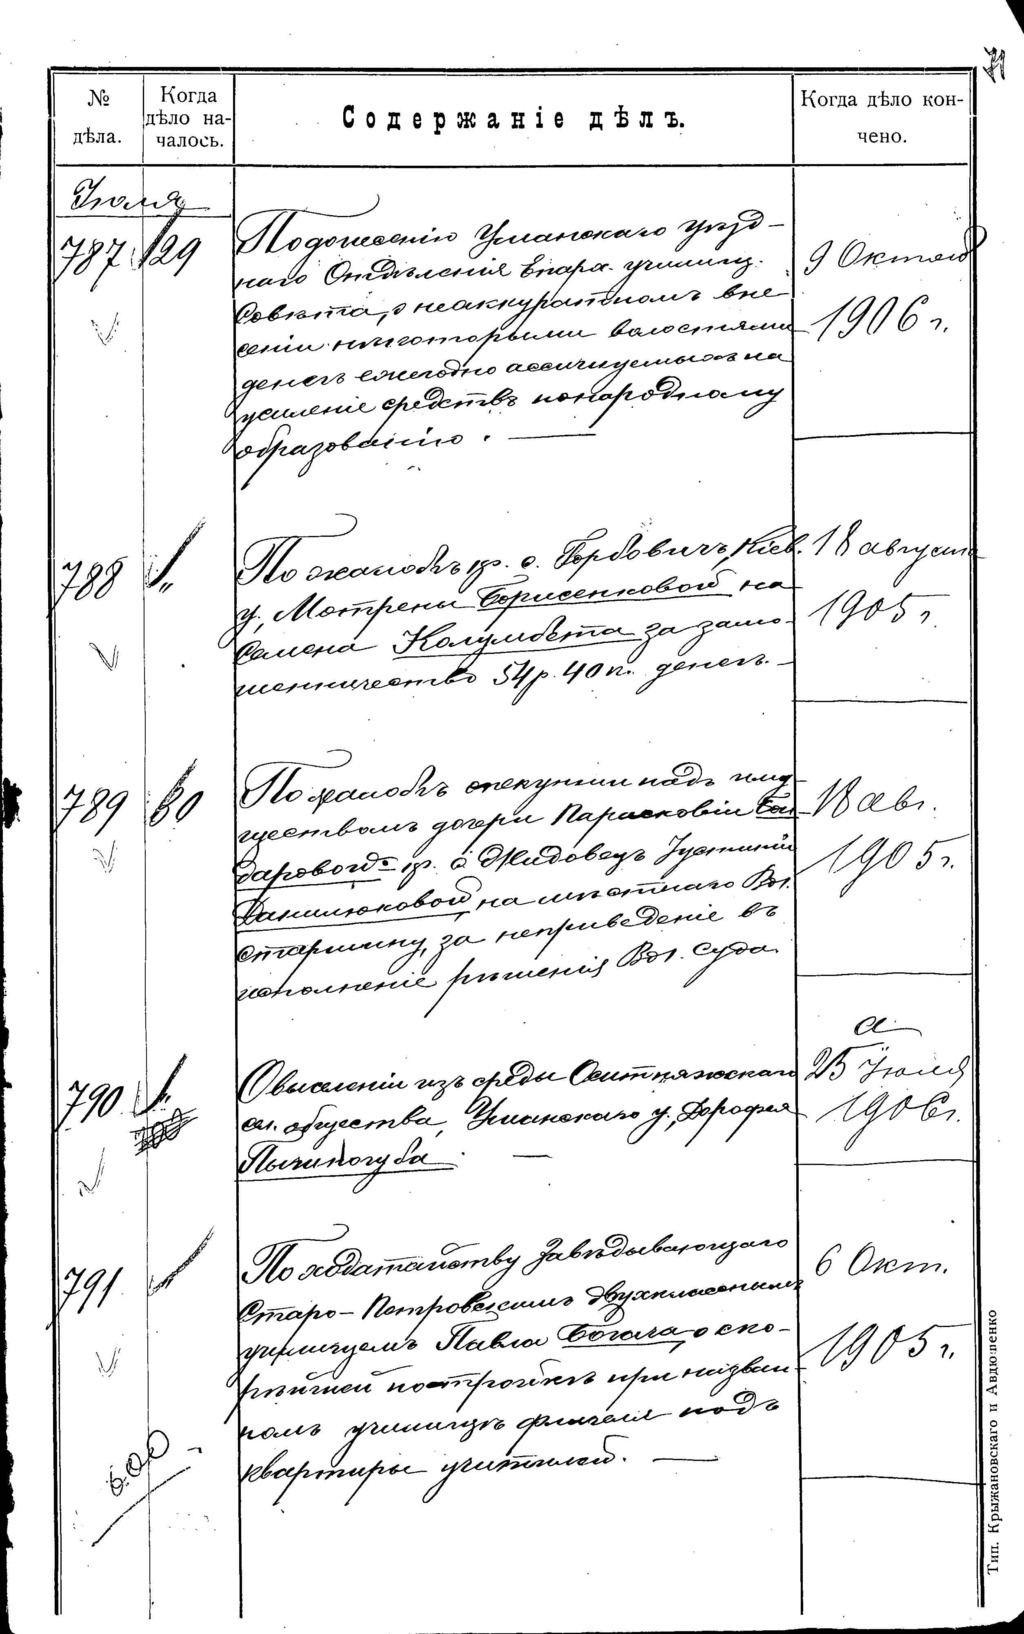 71
№ дѣла.
Когда дѣло началось.
Содержаніе дѣлъ.
Когда дѣло кончено.
Іюля
787 29
По донесенію Уманскаго уѣзд-
наго Отдѣленія Епарх. училищ.
Совѣта, о неаккуратномъ вне
сеніи нѣкоторыми волостями
денегъ ежегодно ассигнуемыхъ на
усиленіе средствъ по народному
образованію.
9 Октяб
1906 г.
788 "
По жалобѣ кр. с. Горбовичъ, Кіев.
у., Мотрены Борисенковой на
Семена Колумбета за замо-
шенничество 54 р. 40 к. денегъ.
18 августа
1905 г.
789 30
По жалобѣ опекунши надъ иму
ществомъ дочери Парасковіи Бон
даровой кр. с. Жидовецъ Іустиніи
Данилюковой, на мѣстнаго Вол.
Старшину, за неприведеніе въ
исполненіе рѣшенія Вол. Суда.
18 авг.
1905 г.
790 "
О выселеніи изъ среды Ситняжскаго
сел. общества, Уманскаго у., Дорофея
а
25 Іюля
1906 г.
791
По ходатайству Завѣдывающаго
Старо-Петровскимъ двухкласснымъ
училищемъ Павла Богача, о ско-
рѣйшей постройкѣ при назван-
номъ училищѣ флигеля подъ
квартиры учителей.
6 Окт.
1905 г.
Тип. Крыжановскаго и Авдюшенко